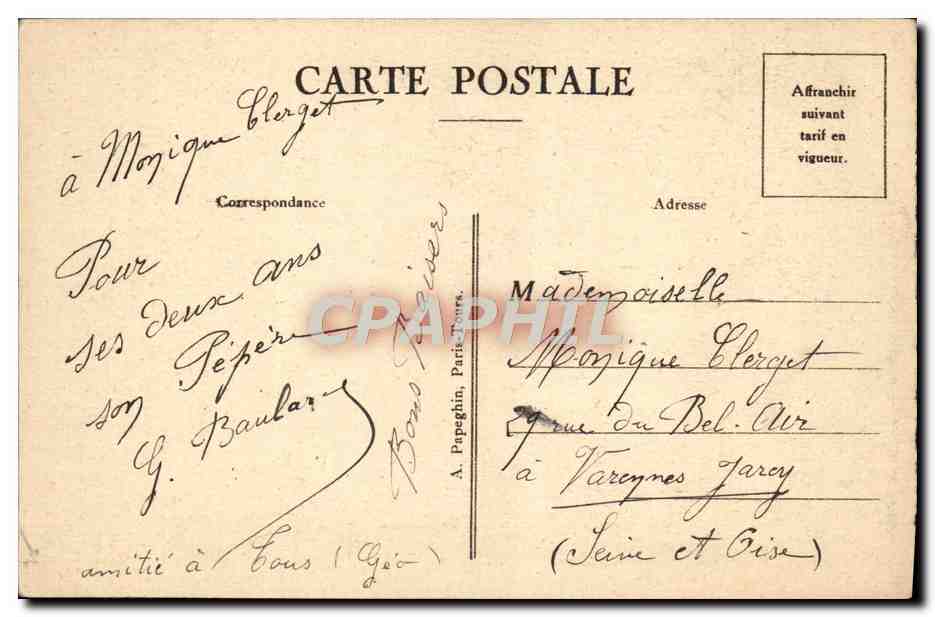 CARTE POSTALE
Affranchir
suivant
tarif en
vigueur.
à Monique Clerget
Correspondance
Adresse
Pour
ses deux ans
son Pépère
G. Baulard
Bons Baisers
amitié à Tous (Géo)
A. Papeghin, Paris-Tours.
CPAPHIL
Mademoiselle
Monique Clerget
9 rue du Bel-Air
à Vareynes Jarcy
(Seine et Oise)